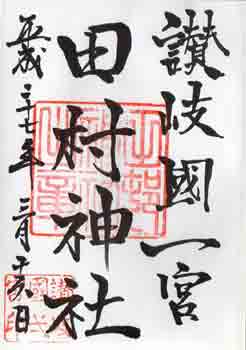 讃岐國一宮
田村神社
平成二十七年三月十六日